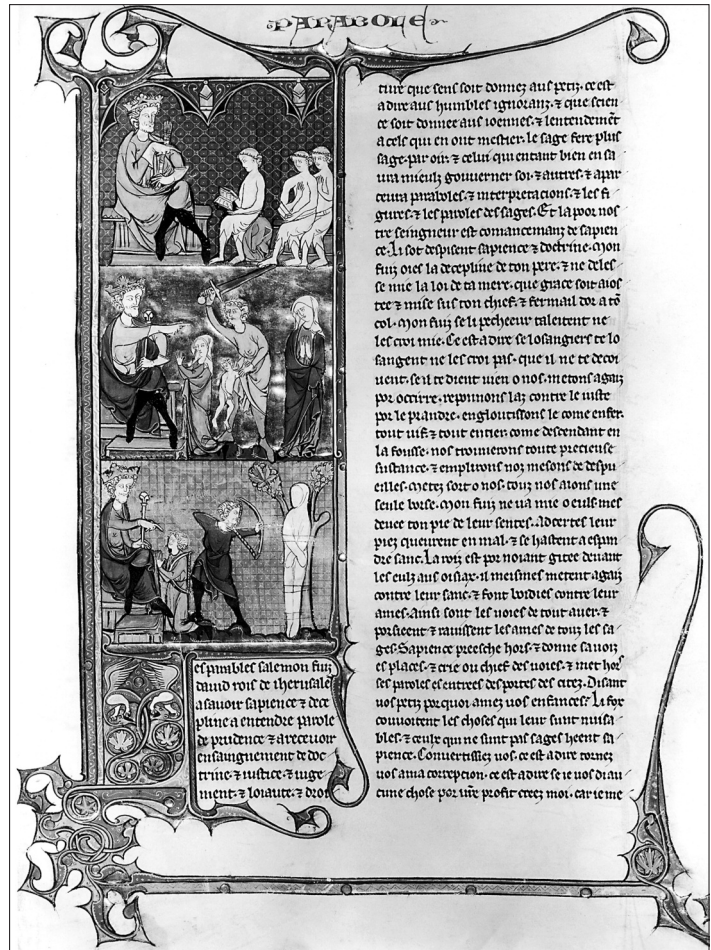 PARABOLE
es paraboles salemon fiuz
dauid rois de iherusalē
a sauoir sapience ⁊ dece
pline a entendre parole
de prudence ⁊ a receuoir
enseingnement de doc
trine ⁊ iustice ⁊ iuge
ment ⁊ loiaute ⁊ droi
ture que sens soit donnez aus petiz. ce est
a dire aus humbles ignoranz. ⁊ que scien
ce soit donnee aus ioennes. ⁊ lentendemēt
a cels qui en ont mestier. le sage fere plus
sage par oir. ⁊ celui qui entant bien en sa
ura mieulz gouuerner soi. ⁊ autres. ⁊ apar
ceura paraboles. ⁊ interpretacions. ⁊ les fi
gures. ⁊ les paroles des sages. Et la poor nos
tre seingneur est comancemanz de sapien
ce. Li sot despisent sapience ⁊ doctrine. Mon
fiuz ores la decepline de ton pere. ⁊ ne deles
se mie la loi de ta mere. que grace soit aios
tee ⁊ mise sus ton chief. ⁊ fermail dor a tō
col. Mon fiuz se li pecheeur taleitent ne
les croi mie. Ce est a dire se losangiers te lo
sangent ne les croi pas. que il ne te decoi
uent. se il te dient uien o nos. metons agaiz
por occirre. reponnons laz contre le iuste
por le prandre. engloutissons le come enfer.
tout uif. ⁊ tout entier. come descendant en
la fousse. nos trouuerons toute precieuse
sustance. ⁊ emplirons noz mesons de despu
eilles. Metez sort o nos. touz nos aions une
seule borse. Mon fiuz ne ua mie o euls. mes
deuee ton pie de leur sentes. Adcertes leur
piez queurent en mal. ⁊ se hastent a espan
dre sanc. La roiz est por noiant gitee deuant
les eulz aus oisiax. il meismes metent agaiz
contre leur sanc. ⁊ font boidies contre leur
ames. Ainsi sont les uoies de tout auer. ⁊
porsieent ⁊ rauissent les ames de touz les sa
ges. Sapience preesche hors. ⁊ donne sa uoiz
es places. ⁊ crie ou chief des uoies. ⁊ met hors
ses paroles es entrees des portes des citez. Disant
uos petiz por quoi amez uos enfances? Li fox
couuoitent les choses qui leur sunt nuisa
bles. ⁊ ceulx qui ne sunt pas sages heent sa
pience. Conuertissiez uos. ce est a dire tornez
uos a ma correpcion. ce est a dire se ie uos di au
cune chose por ure profit creez moi. car ie me